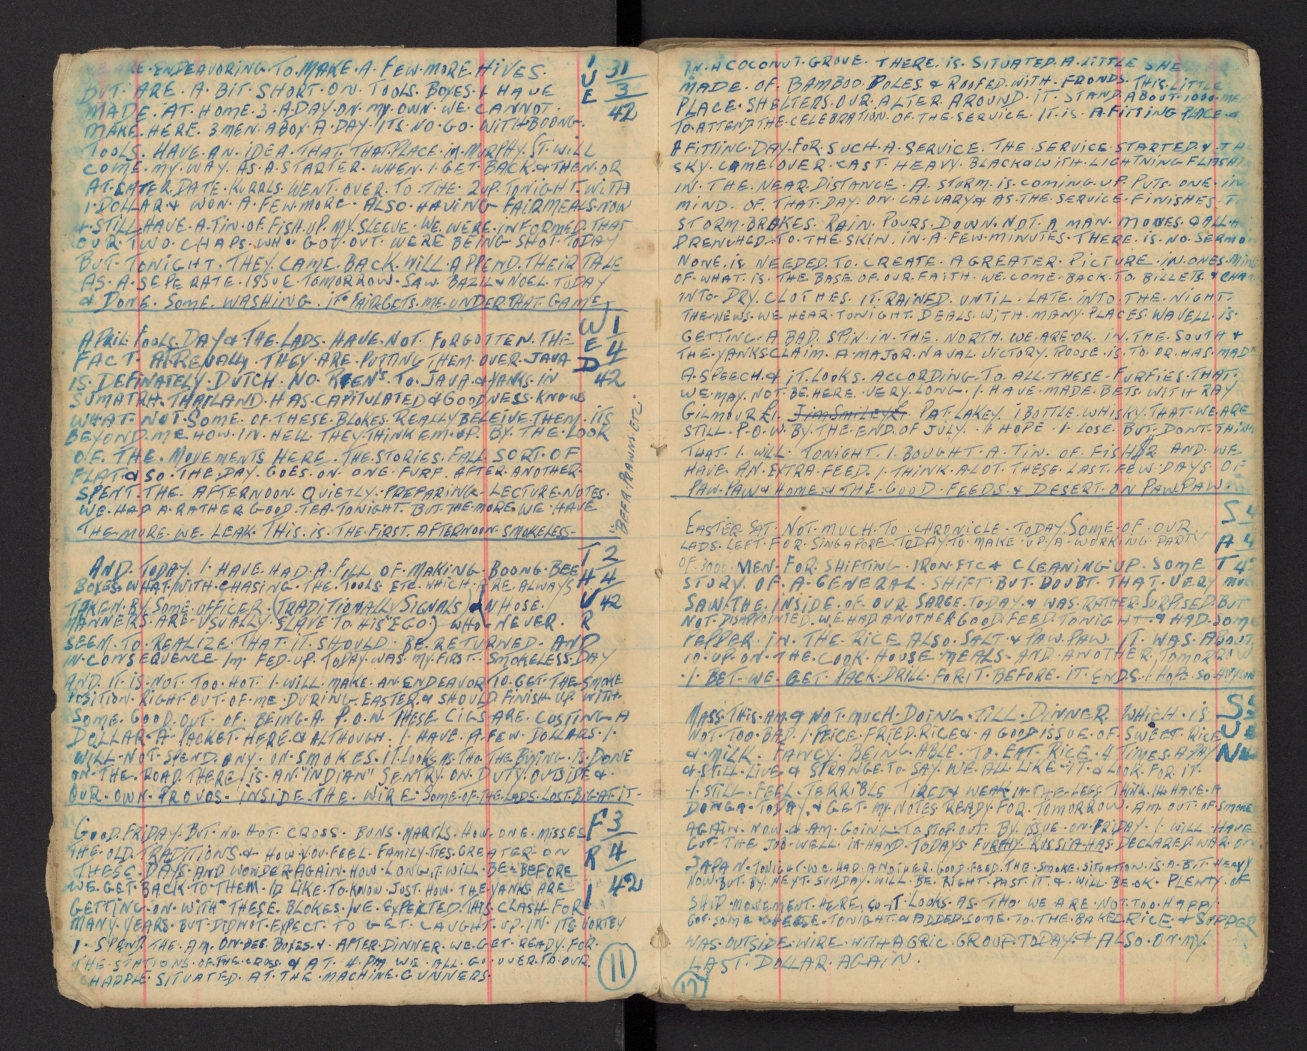 WE ARE ENDEAVORING TO MAKE A FEW MORE HIVES.
BUT ARE A BIT SHORT ON TOOLS. BOXES I HAVE
MADE AT HOME 3 A DAY ON MY OWN WE CANNOT
MAKE HERE 3 MEN A BOX A DAY ITS NO GO WITH BOONG
TOOLS. HAVE AN IDEA THAT THAT PLACE IN MURPHY ST WILL
COME MY WAY AS A STARTER WHEN I GET BACK & THEN OR
AT LATER DATE. WENT OVER TO THE 2UP TONIGHT WITH
1 DOLLAR & WON A FEW MORE. ALSO HAVING FAIR MEALS NOW
& STILL HAVE A TIN OF FISH UP MY SLEEVE. WE WERE INFORMED THAT
OUR TWO CHAPS WHO GOT OUT WERE BEING SHOT TODAY
BUT TONIGHT THEY CAME BACK WILL APPEND THEIR TALE
AS A SEPERATE ISSUE TOMORROW. SAW BAZIL & NOEL TODAY
& DONE SOME WASHING. GETS ME UNDER THAT GAME
TUE 31/3/42
APRIL FOOLS DAY & THE LADS HAVE NOT FORGOTTEN THE
FACT. THEY ARE PUTTING THEM OVER JAVA
IS DEFINATELY DUTCH. NO TO JAVA & YANKS IN
SUMATRA. THAILAND HAS CAPITULATED & GOODNESS KNOWS
WHAT NOT SOME OF THESE BLOKES REALLY BELEIVE THEM ITS
BEYOND ME HOW IN HELL THEY THINK EM UP. BY THE LOOK
OF THE MOVEMENTS HERE THE STORIES FALL SORT OF
FLAT & SO THE DAY GOES ON ONE FURF AFTER ANOTHER
SPENT THE AFTERNOON QUIETLY PREPARING LECTURE NOTES.
WE HAD A RATHER GOOD TEA TONIGHT BUT THE MORE WE HAVE
THE MORE WE LEAK THIS IS THE FIRST AFTERNOON SMOKELESS.
WED 1/4/42
BEER PRAWNS ETC.
AND TODAY I HAVE HAD A FILL OF MAKING BOONG BEE
BOXES WHAT WITH CHASING THE TOOLS ETC WHICH ARE ALWAYS
TAKEN BY SOME OFFICER (TRADITIONALLY SIGNALS & WHOSE
MANNERS ARE USUALLY SLAVE TO HIS EGO) WHO NEVER
SEEM TO REALIZE THAT IT SHOULD BE RETURNED AND
IN CONSEQUENCE IM FED UP. TODAY WAS MY FIRST SMOKELESS DAY
AND IT IS NOT TOO HOT. I WILL MAKE AN ENDEAVOR TO GET THE SMOKE
POSITION RIGHT OUT OF ME DURING EASTER & SHOULD FINISH UP WITH
SOME GOOD OUT OF BEING A P.O.W THESE CIGS ARE COSTING A
DOLLAR A PACKET HERE & ALTHOUGH I HAVE A FEW DOLLARS I
WILL NOT SPEND ANY ON SMOKES IT LOOKS AS THO THE BYING IS DONE
ON THE ROAD THERE IS AN "INDIAN" SENTRY ON DUTY OUTSIDE &
OUR OWN PROVOS INSIDE THE WIRE SOME OF THE LADS LOST BIG AT IT
THUR 2/4/42
GOOD FRIDAY BUT NO HOT CROSS BUNS MARIES HOW ONE MISSES
THE OLD TRADITIONS & HOW YOU FEEL FAMILY TIES GREATER ON
THESE DAYS AND WONDER AGAIN HOW LONG IT WILL BE BEFORE
WE GET BACK TO THEM ID LIKE TO KNOW JUST HOW THE YANKS ARE
GETTING ON WITH THESE BLOKES IVE EXPECTED THIS CLASH FOR
MANY YEARS BUT DID NOT EXPECT TO GET CAUGHT UP IN ITS VORTEX
I SPENT THE AM. ON BEE BOXES & AFTER DINNER WE GET READY FOR
THE STATIONS OF THE CROSS & AT 4 PM WE ALL GO OVER TO OUR
CHAPPLE SITUATED AT THE MACHINE GUNNERS
FRI 3/4/42
11
IN A COCONUT GROVE THERE IS SITUATED A LITTLE SHE
MADE OF BAMBOO POLES & ROOFED WITH FRONDS THIS LITTLE
PLACE SHELTERS OUR ALTER AROUND IT STAND ABOUT 1000 MEN
TO ATTEND THE CELEBRATION OF THE SERVICE IT IS A FITTING PLACE &
A FITTING DAY FOR SUCH A SERVICE. THE SERVICE STARTED & TH
SKY CAME OVER CAST HEAVY BLACK & WITH LIGHTNING FLASH
IN THE NEAR DISTANCE A STORM IS COMING UP PUTS ONE IN
MIND OF THAT DAY ON CALVARY & AS THE SERVICE FINISHES T
STORM BRAKES RAIN POURS DOWN NOT A MAN MOVES & ALL
DRENCHED TO THE SKIN IN A FEW MINUTES THERE IS NO SERMON
NONE IS NEEDED TO CREATE A GREATER PICTURE IN ONES MIND
OF WHAT IS THE BASE OF OUR FAITH WE COME BACK TO BILLETS & CHAN
INTO DRY CLOTHES IT RAINED UNTIL LATE INTO THE NIGHT
THE NEWS WE HEAR TONIGHT DEALS WITH MANY PLACES WAVELL IS
GETTING A BAD SPIN IN THE NORTH WE ARE OK IN THE SOUTH &
THE YANKS CLAIM A MAJOR NAVAL VICTORY. ROOSE IS TO OR HAS MADE
A SPEECH & IT LOOKS ACCORDING TO ALL THESE FURFIES THAT
WE MAY NOT BE HERE VERY LONG I HAVE MADE BETS WITH RAY
GILMOUR £1. JIM SMILEY £1 PAT LAKEY 1 BOTTLE WHISKY THAT WE ARE
STILL P.O.W BY THE END OF JULY. I HOPE I LOSE BUT DONT THINK
THAT I WILL TONIGHT I BOUGHT A TIN OF FISH AND WE
HAVE AN EXTRA FEED I THINK A LOT THESE LAST FEW DAYS OF
PAW PAW & HOME & THE GOOD FEEDS & DESERT ON PAW PAW.
EASTER SAT. NOT MUCH TO CHRONICLE TODAY SOME OF OUR
LADS LEFT FOR SINGAPORE TODAY TO MAKE UP A WORKING PARTY
OF 3000 MEN FOR SHIFTING IRON ETC & CLEANING UP. SOME
STORY OF A GENERAL SHIFT BUT DOUBT THAT VERY MUCH
SAW THE INSIDE OF OUR SARGE TODAY & WAS RATHER SURPISED BUT
NOT DISAPPOINTED WE HAD ANOTHER GOOD FEED TONIGHT & HAD SOME
PEPPER IN THE RICE ALSO SALT & PAW PAW IT WAS ABOUT
10 UP ON THE COOK HOUSE MEALS AND ANOTHER TOMORROW
I BET WE GET PACK DRILL FOR IT BEFORE IT ENDS. I HOPE SO ANYHOW
SAT 4/4
MASS THIS AM & NOT MUCH DOING TILL DINNER WHICH IS
NOT TOO BAD. 1 PIECE FRIED RICE & A GOOD ISSUE OF SWEET RICE
& MILK FANCY BEING ABLE TO EAT RICE 4 TIMES A DAY
& STILL LIVE & STRANGE TO SAY WE ALL LIKE IT & LOOK FOR IT
I STILL FEEL TERRIBLE TIRED & WEAK IN THE LEGS THINK ILL HAVE A
DONGA TODAY & GET MY NOTES READY FOR TOMORROW. AM OUT OF SMOKE
AGAIN NOW & AM GOING TO STOP OUT BY ISSUE ON FRIDAY I WILL HAVE
GOT THE JOB WELL IN HAND TODAYS FURPHY RUSSIA HAS DECLARED WAR ON
JAPAN. TONIGHT WE HAD ANOTHER GOOD FEED THE SMOKE SITUATION IS A BIT HEAVY
NOW BUT BY NEXT SUNDAY WILL BE RIGHT PAST IT & WILL BE OK. PLENTY OF
SHIP MOVEMENT HERE, SO IT LOOKS AS THO WE ARE NOT TOO HAPPY
GOT SOME CHEESE TONIGHT & ADDED SOME TO THE BAKED RICE & SUPPER
WAS OUTSIDE WIRE WITH AGRIC GROUP TODAY & ALSO ON MY
LAST DOLLAR AGAIN.
SUN 5
12